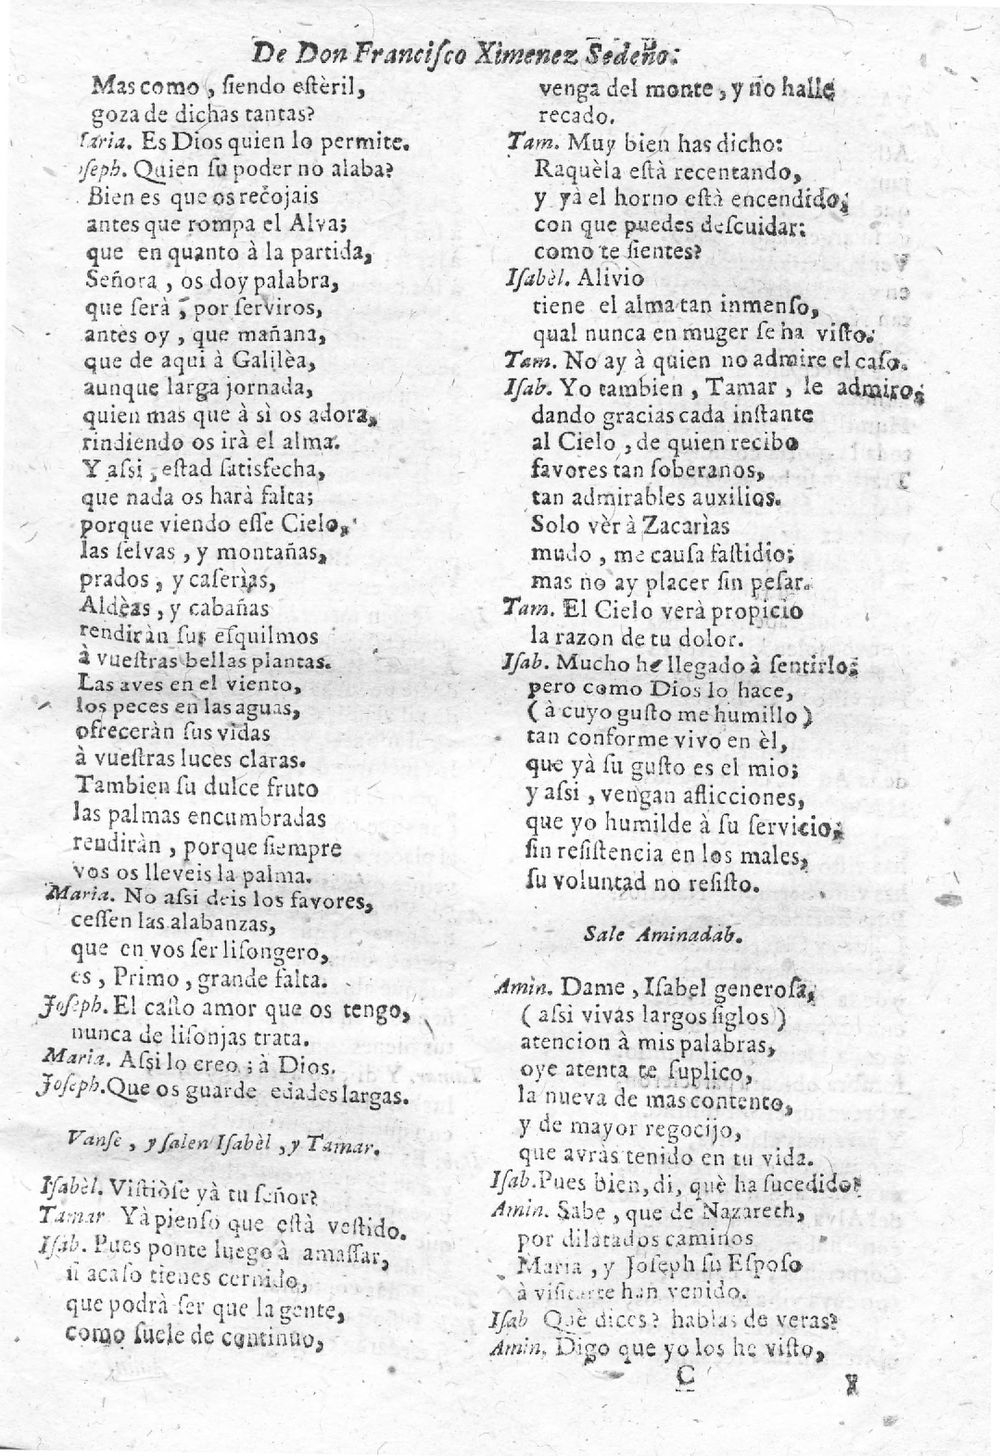 De Don Francisco Ximenez Sedeño:
Mas como, siendo estèril,
goza de dichas tantas?
Maria. Es Dios quien lo permite.
Joseph. Quien su poder no alaba?
Bien es que os recojais
antes que rompa el Alva;
que en quanto à la partida,
Señora, os doy palabra,
que serà, por serviros,
antes oy, que mañana,
que de aqui à Galilèa,
aunque larga jornada,
quien mas que à sì os adora,
rindiendo os irà el alma.
Y assi, estad satisfecha,
que nada os harà falta;
porque viendo esse Cielo,
las selvas, y montañas,
prados, y caserìas,
Aldèas, y cabañas
rendiràn sus esquilmos
à vuestras bellas plantas.
Las aves en el viento,
los peces en las aguas,
ofreceràn sus vidas
à vuestras luces claras.
Tambien su dulce fruto
las palmas encumbradas
rendiràn, porque siempre
vos os lleveis la palma.
Maria. No assi deis los favores,
cessen las alabanzas,
que en vos ser lisongero,
es, Primo, grande falta.
Joseph. El casto amor que os tengo,
nunca de lisonjas trata.
Maria. Assi lo creo; à Dios.
Joseph. Que os guarde edades largas.
Vanse, y salen Isabèl, y Tamar.
Isabèl. Vistiòse yà tu señor?
Tamar Yà pienso que està vestido.
Isab. Pues ponte luego à amassar,
si acaso tienes cernido,
que podrà ser que la gente,
como suele de continuo,
venga del monte, y no halle
recado.
Tam. Muy bien has dicho:
Raquèla està recentando,
y yà el horno està encendido,
con que puedes descuidar:
como te sientes?
Isabèl. Alivio
tiene el alma tan inmenso,
qual nunca en muger se ha visto.
Tam. No ay à quien no admire el caso.
Isab. Yo tambien, Tamar, le admiro,
dando gracias cada instante
al Cielo, de quien recibo
favores tan soberanos,
tan admirables auxilios.
Solo vèr à Zacarìas
mudo, me causa fastidio;
mas no ay placer sin pesar.
Tam. El Cielo verà propicio
la razon de tu dolor.
Isab. Mucho he llegado à sentirlo;
pero como Dios lo hace,
(à cuyo gusto me humillo)
tan conforme vivo en èl,
que yà su gusto es el mio;
y assi, vengan aflicciones,
que yo humilde à su servicio,
sin resistencia en los males,
su voluntad no resisto.
Sale Aminadab.
Amin. Dame, Isabel generosa,
(assi vivas largos siglos)
atencion à mis palabras,
oye atenta te suplico,
la nueva de mas contento,
y de mayor regocijo,
que avràs tenido en tu vida.
Isab. Pues bien, di, què ha sucedido?
Amin. Sabe, que de Nazareth,
por dilatados caminos
Maria, y Joseph su Esposo
à visitarte han venido.
Isab Què dices? hablas de veras?
Amin. Digo que yo los he visto,
C
y